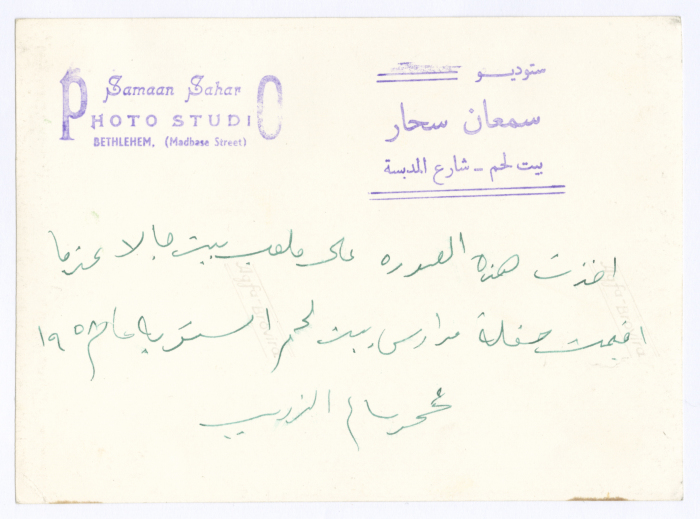 Samaan Sahar
PHOTO STUDIO
BETHLEHEM. (Madbase Street)
ستوديو
سمعان سحار
بيت لحم - شارع المدبسة
اخذت هذه الصوره على ملعب بيت جالا عندما
اقيمت حفلة مدارس بيت لحم السنويه عام ١٩٥٨
محمد سالم الزريب